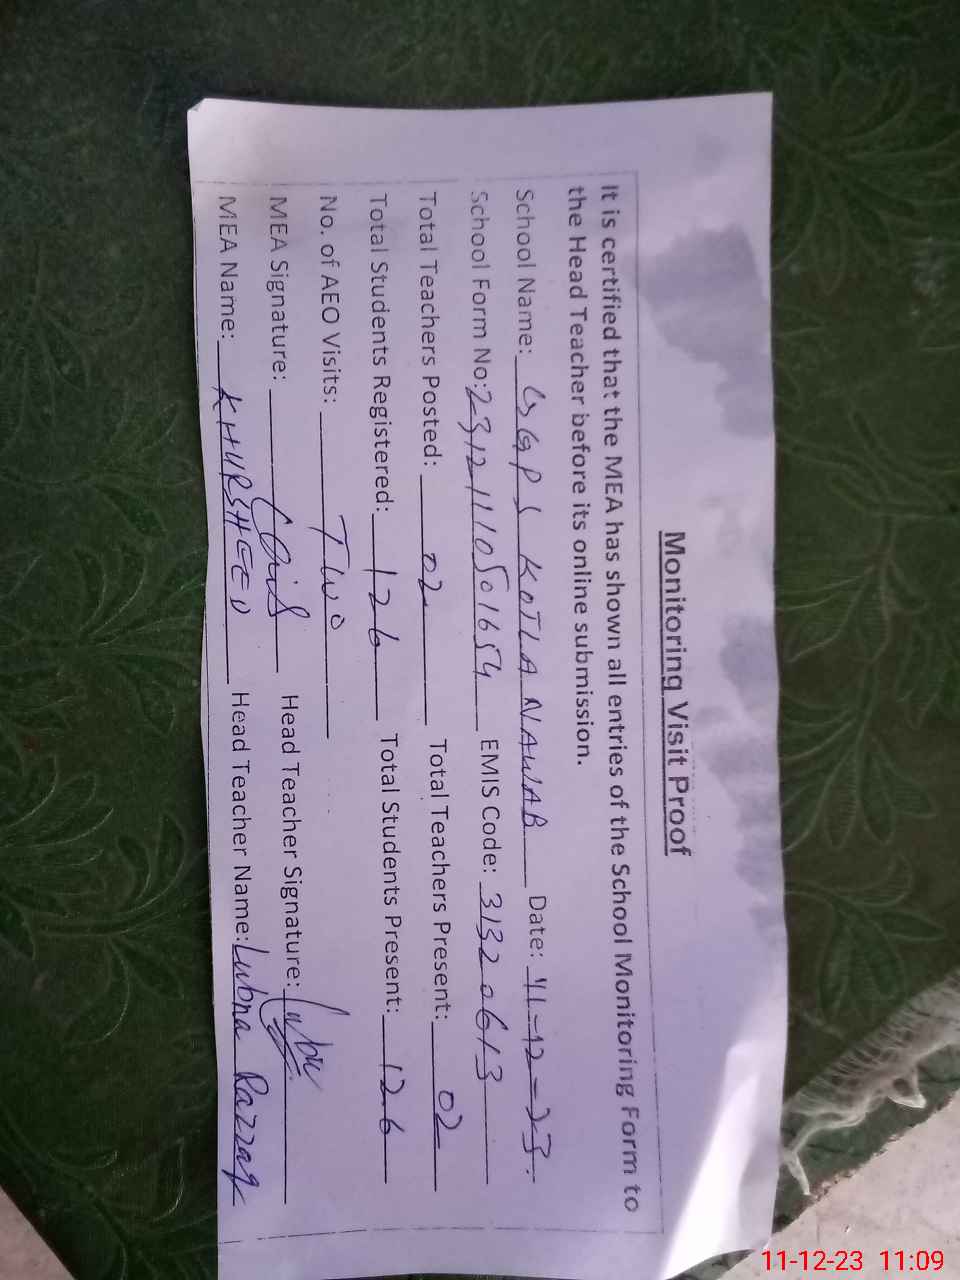 Monitoring Visit Proof
It is certified that the MEA has shown all entries of the School Monitoring Form to
the Head Teacher before its online submission.
School Name: GGPS KOTLA NAWAB Date: 11-12-23.
School Form No: 23121110501654 EMIS Code: 31320613
Total Teachers Posted: 02 Total Teachers Present: 02
Total Students Registered: 126 Total Students Present: 126
No. of AEO Visits: Two
MEA Signature: Head Teacher Signature:
MEA Name: KHURSHEED Head Teacher Name: Lubna Razzaq
11-12-23 11:09